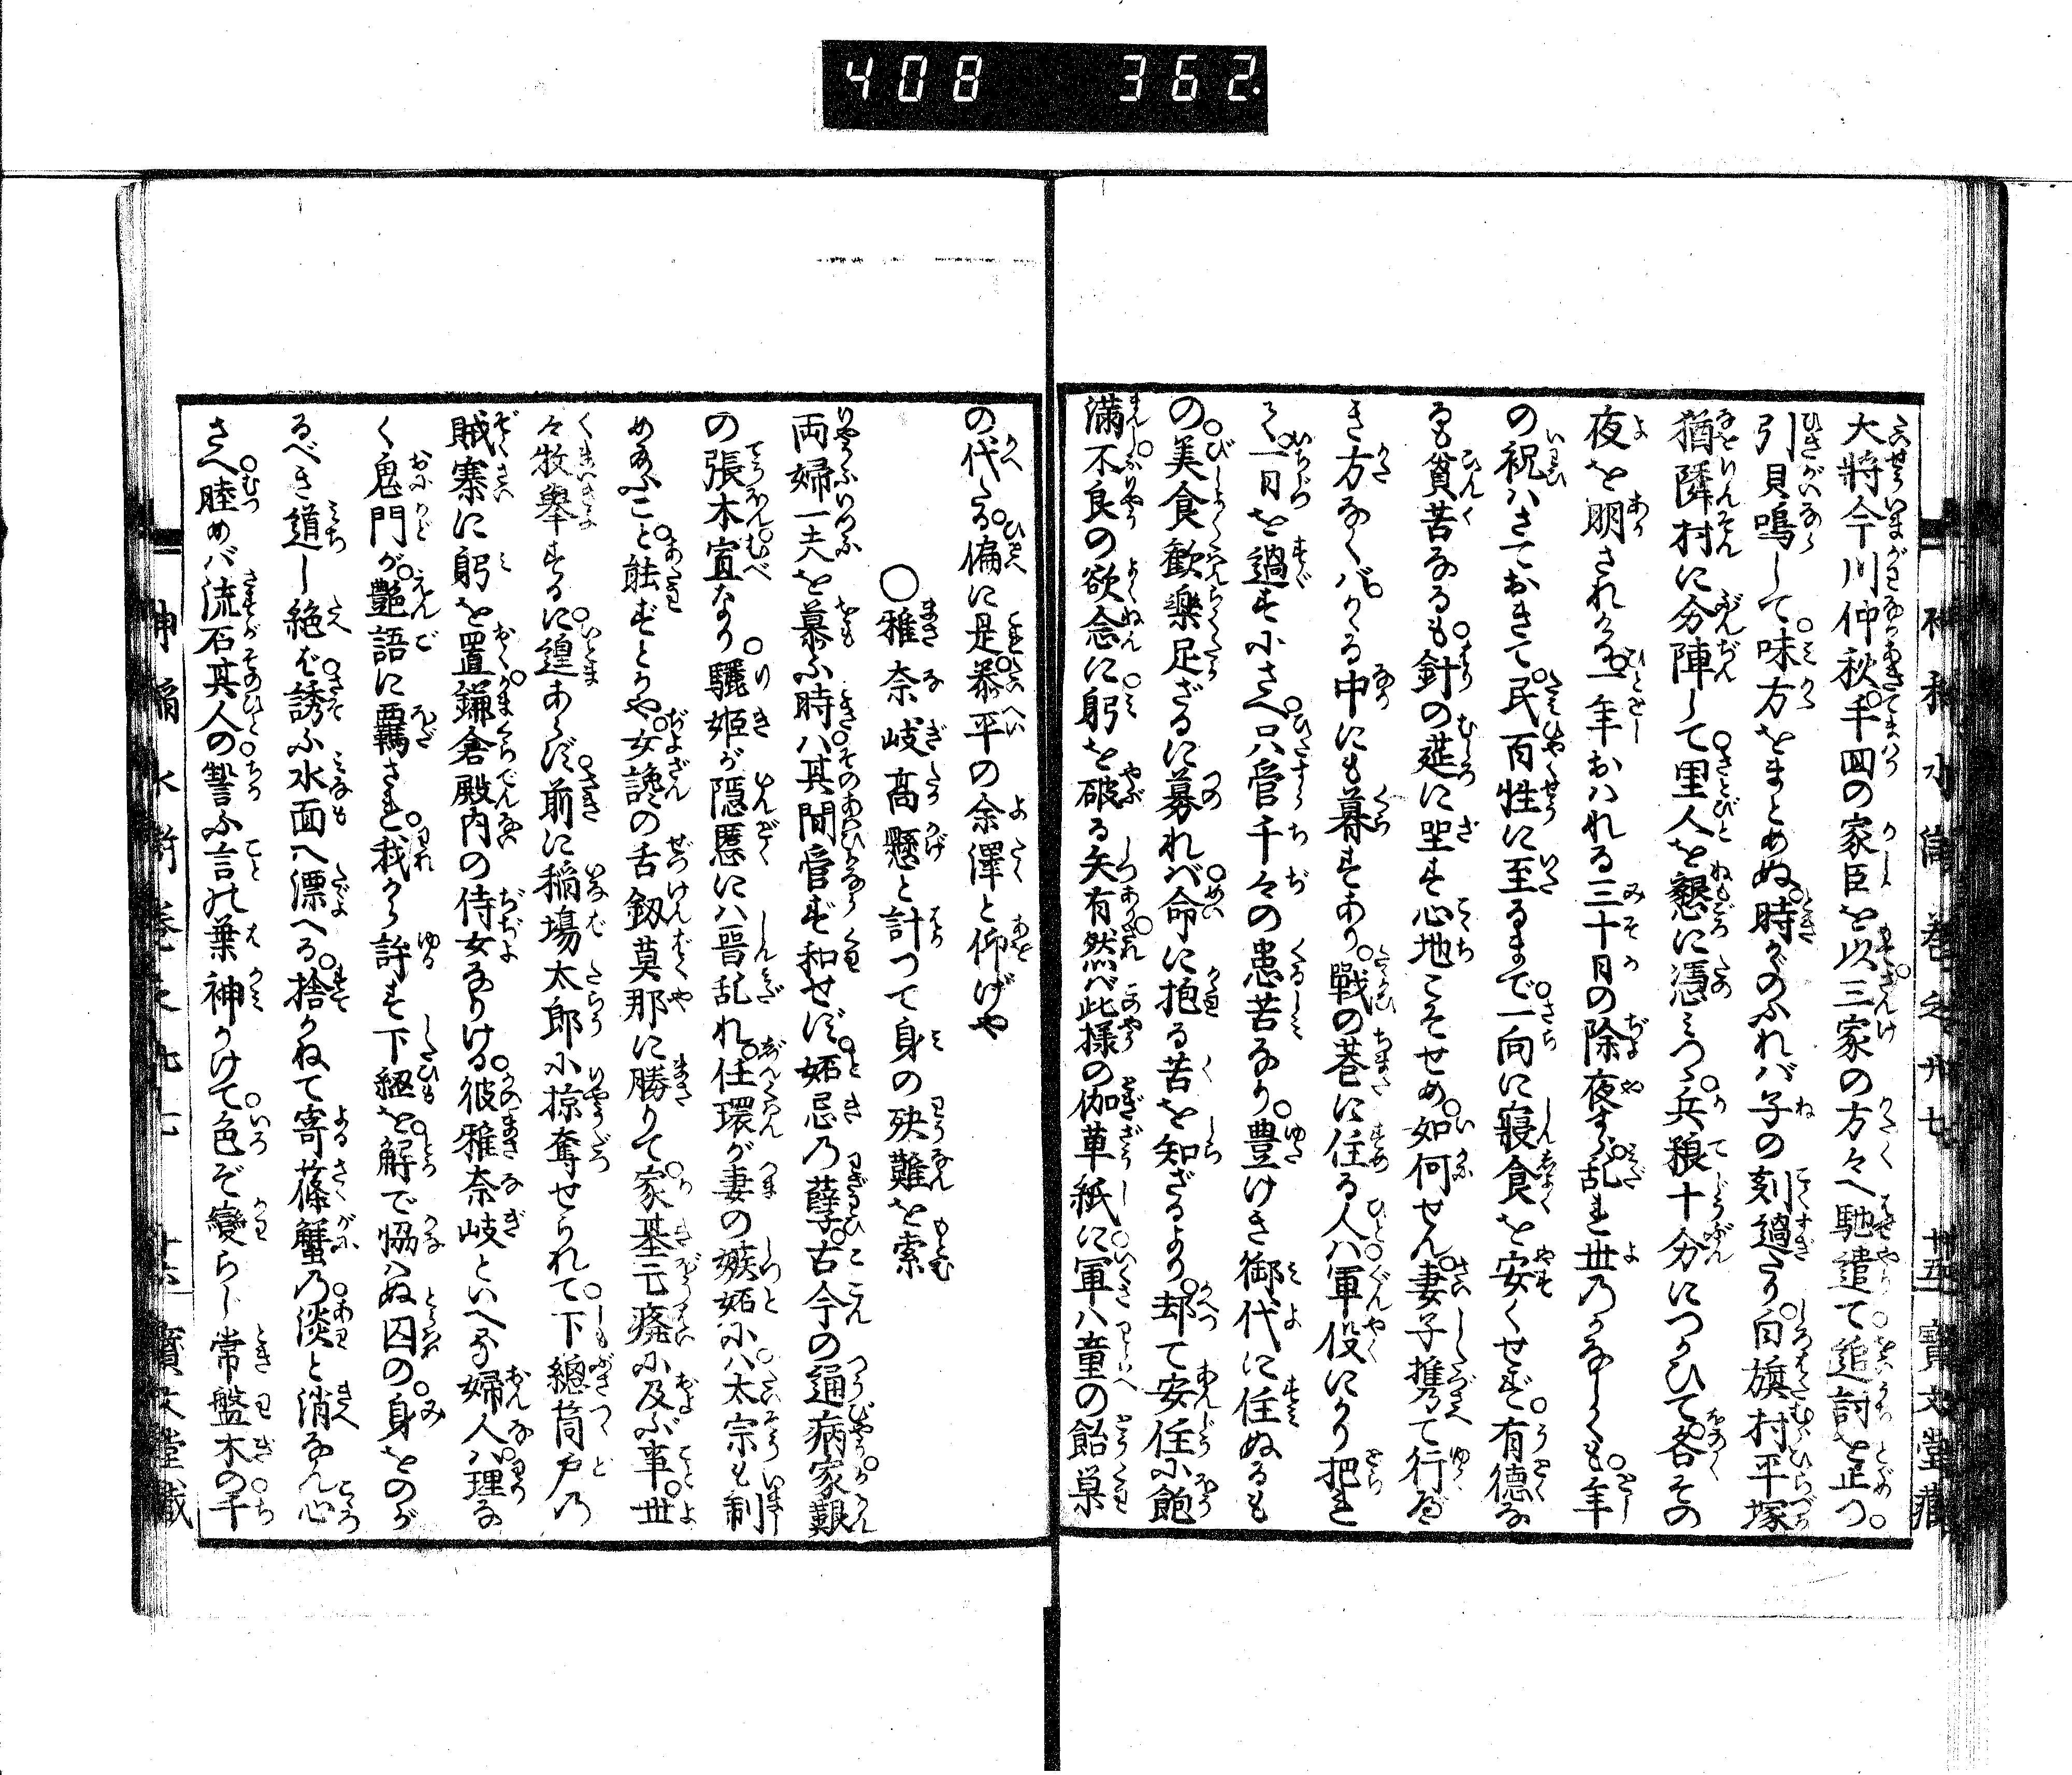 408 362
大將今川仲秋千四の家臣を以三家の方々へ馳遣て追討を止つ。
引貝鳴して味方をまとめぬ時かぞふれバ子の刻過たり白旗村平塚
猶隣村に分陣して里人を懇に憑ミつゝ兵粮十分につかひて各その
夜を明されける一年おハれる三十日の除夜すら乱れ世乃かなしくも年
の祝ハさておきて民百性に至るまで一向に寝食を安くせず有德な
るも貧苦なるも針の莚に坐す心地こそせめ如何せん妻子携て行べ
き方なくバかゝる中にも暮すあり戰の巷に住る人ハ軍役にかり把れ
て一日を過すにさへ只管千々の患苦なり豊けき御代に住ぬるも
の美食歓樂足ざるに募れバ命に抱る苦を知ざるより却て安住に飽
滿不良の欲念に躬を破る矢有然バ此様の伽草紙に軍ハ童の飴菓
の代たる偏に是泰平の余澤と仰げや
○雅奈岐髙懸と計つて身の殃難を索
両婦一夫を慕ふ時ハ其間管ず和せず妬忌乃孽古今の通病家艱
の張本宜なり驪姫が隠慝にハ晋乱れ任環が妻の嫉妬にハ太宗も制
めあふこと能ずとかや女讒の舌釼莫那に勝りて家基元癈に及ぶ事世
々牧舉するに遑あらず前に稲場太郎に掠奪せられて下總筒戸乃
賊寨に躬を置鎌倉殿内の侍女なりける彼雅奈岐といへる婦人ハ理な
く鬼門が艶語に羈され我から許す下紐を解で協ハぬ囚の身をのが
るべき道し絶ず誘ふ水面へ漂へる捨かねて寄篠蟹乃淡と消なん心
さへ睦めバ流石其人の誓ふ言乃葉神かけて色ぞ變らじ常盤木の千